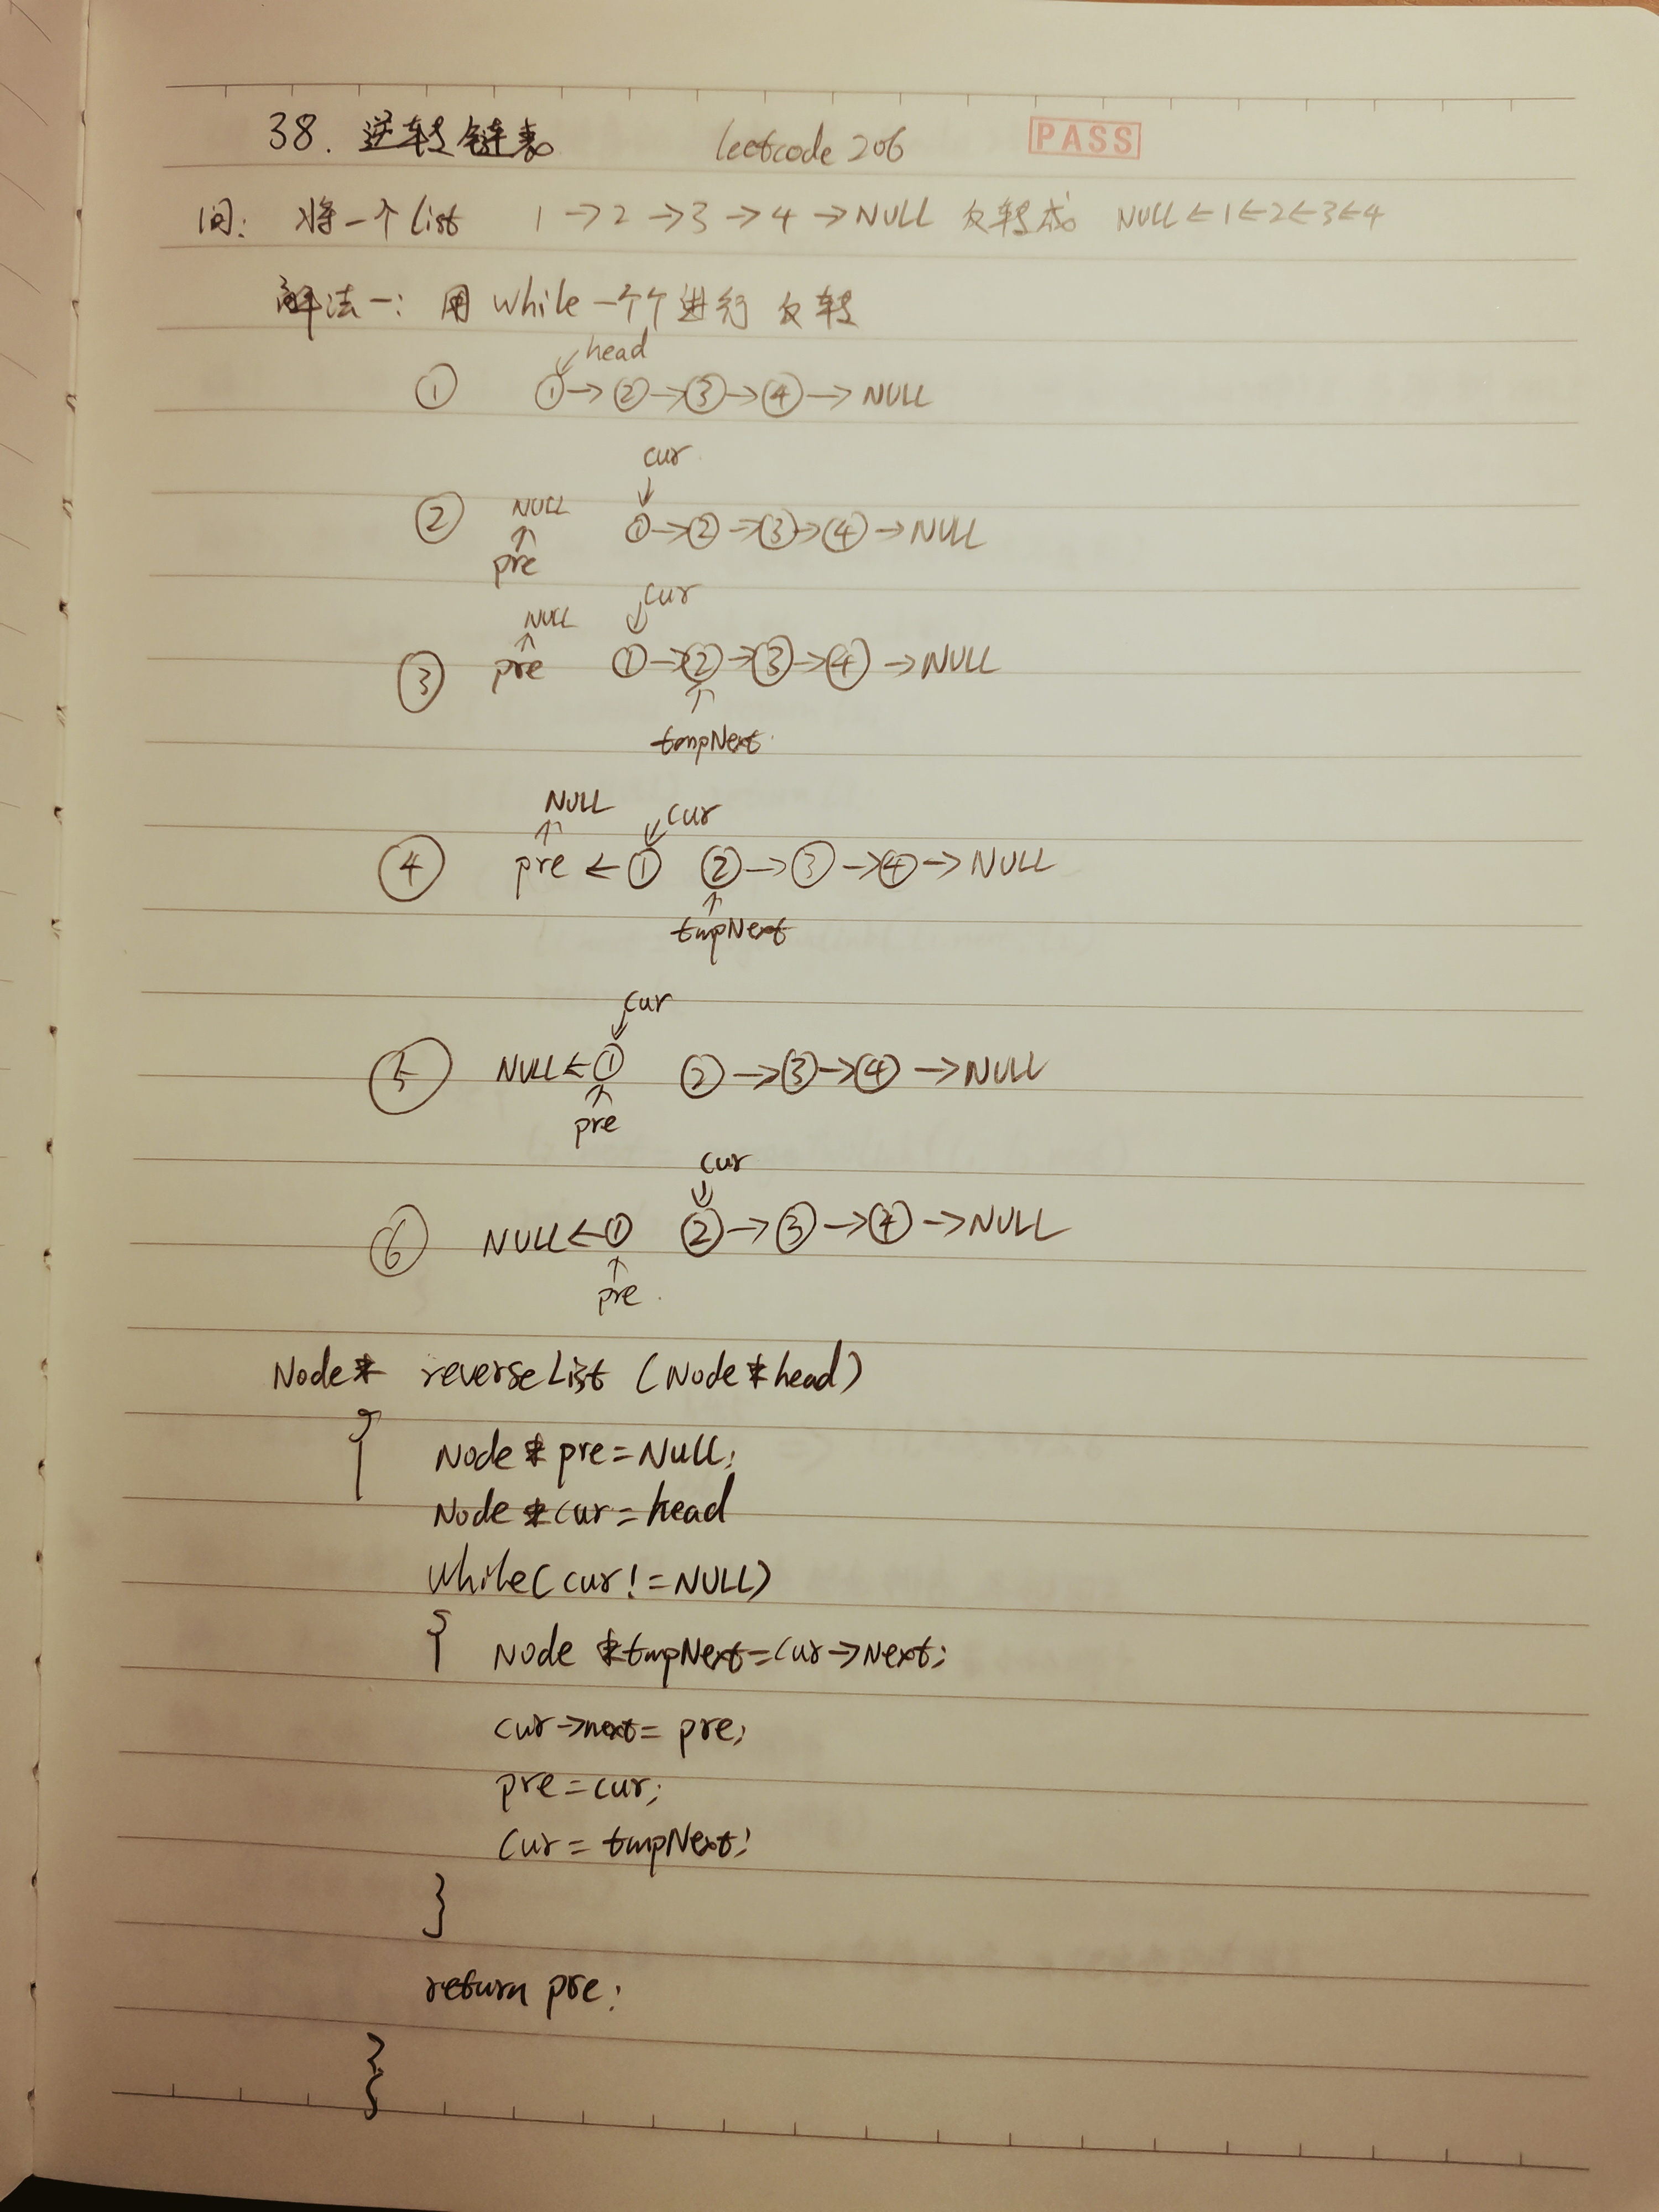 38. 逆转链表 leetcode 206 PASS
问: 将一个list 1→2→3→4→NULL 反转成 NULL←1←2←3←4
解法一: 用while一个个进行反转
head
① ①→②→③→④→NULL
cur
② NULL ①→②→③→④→NULL
pre
NULL cur
③ pre ①→②→③→④→NULL
tmpNext
NULL cur
④ pre←① ②→③→④→NULL
tmpNext
cur
⑤ NULL←① ②→③→④→NULL
pre
cur
⑥ NULL←① ②→③→④→NULL
pre
Node* reverseList (Node*head)
{
Node *pre=NULL;
Node *cur=head
while(cur!=NULL)
{ Node *tmpNext=cur→Next;
cur→next=pre;
pre=cur;
cur=tmpNext;
}
return pre;
}